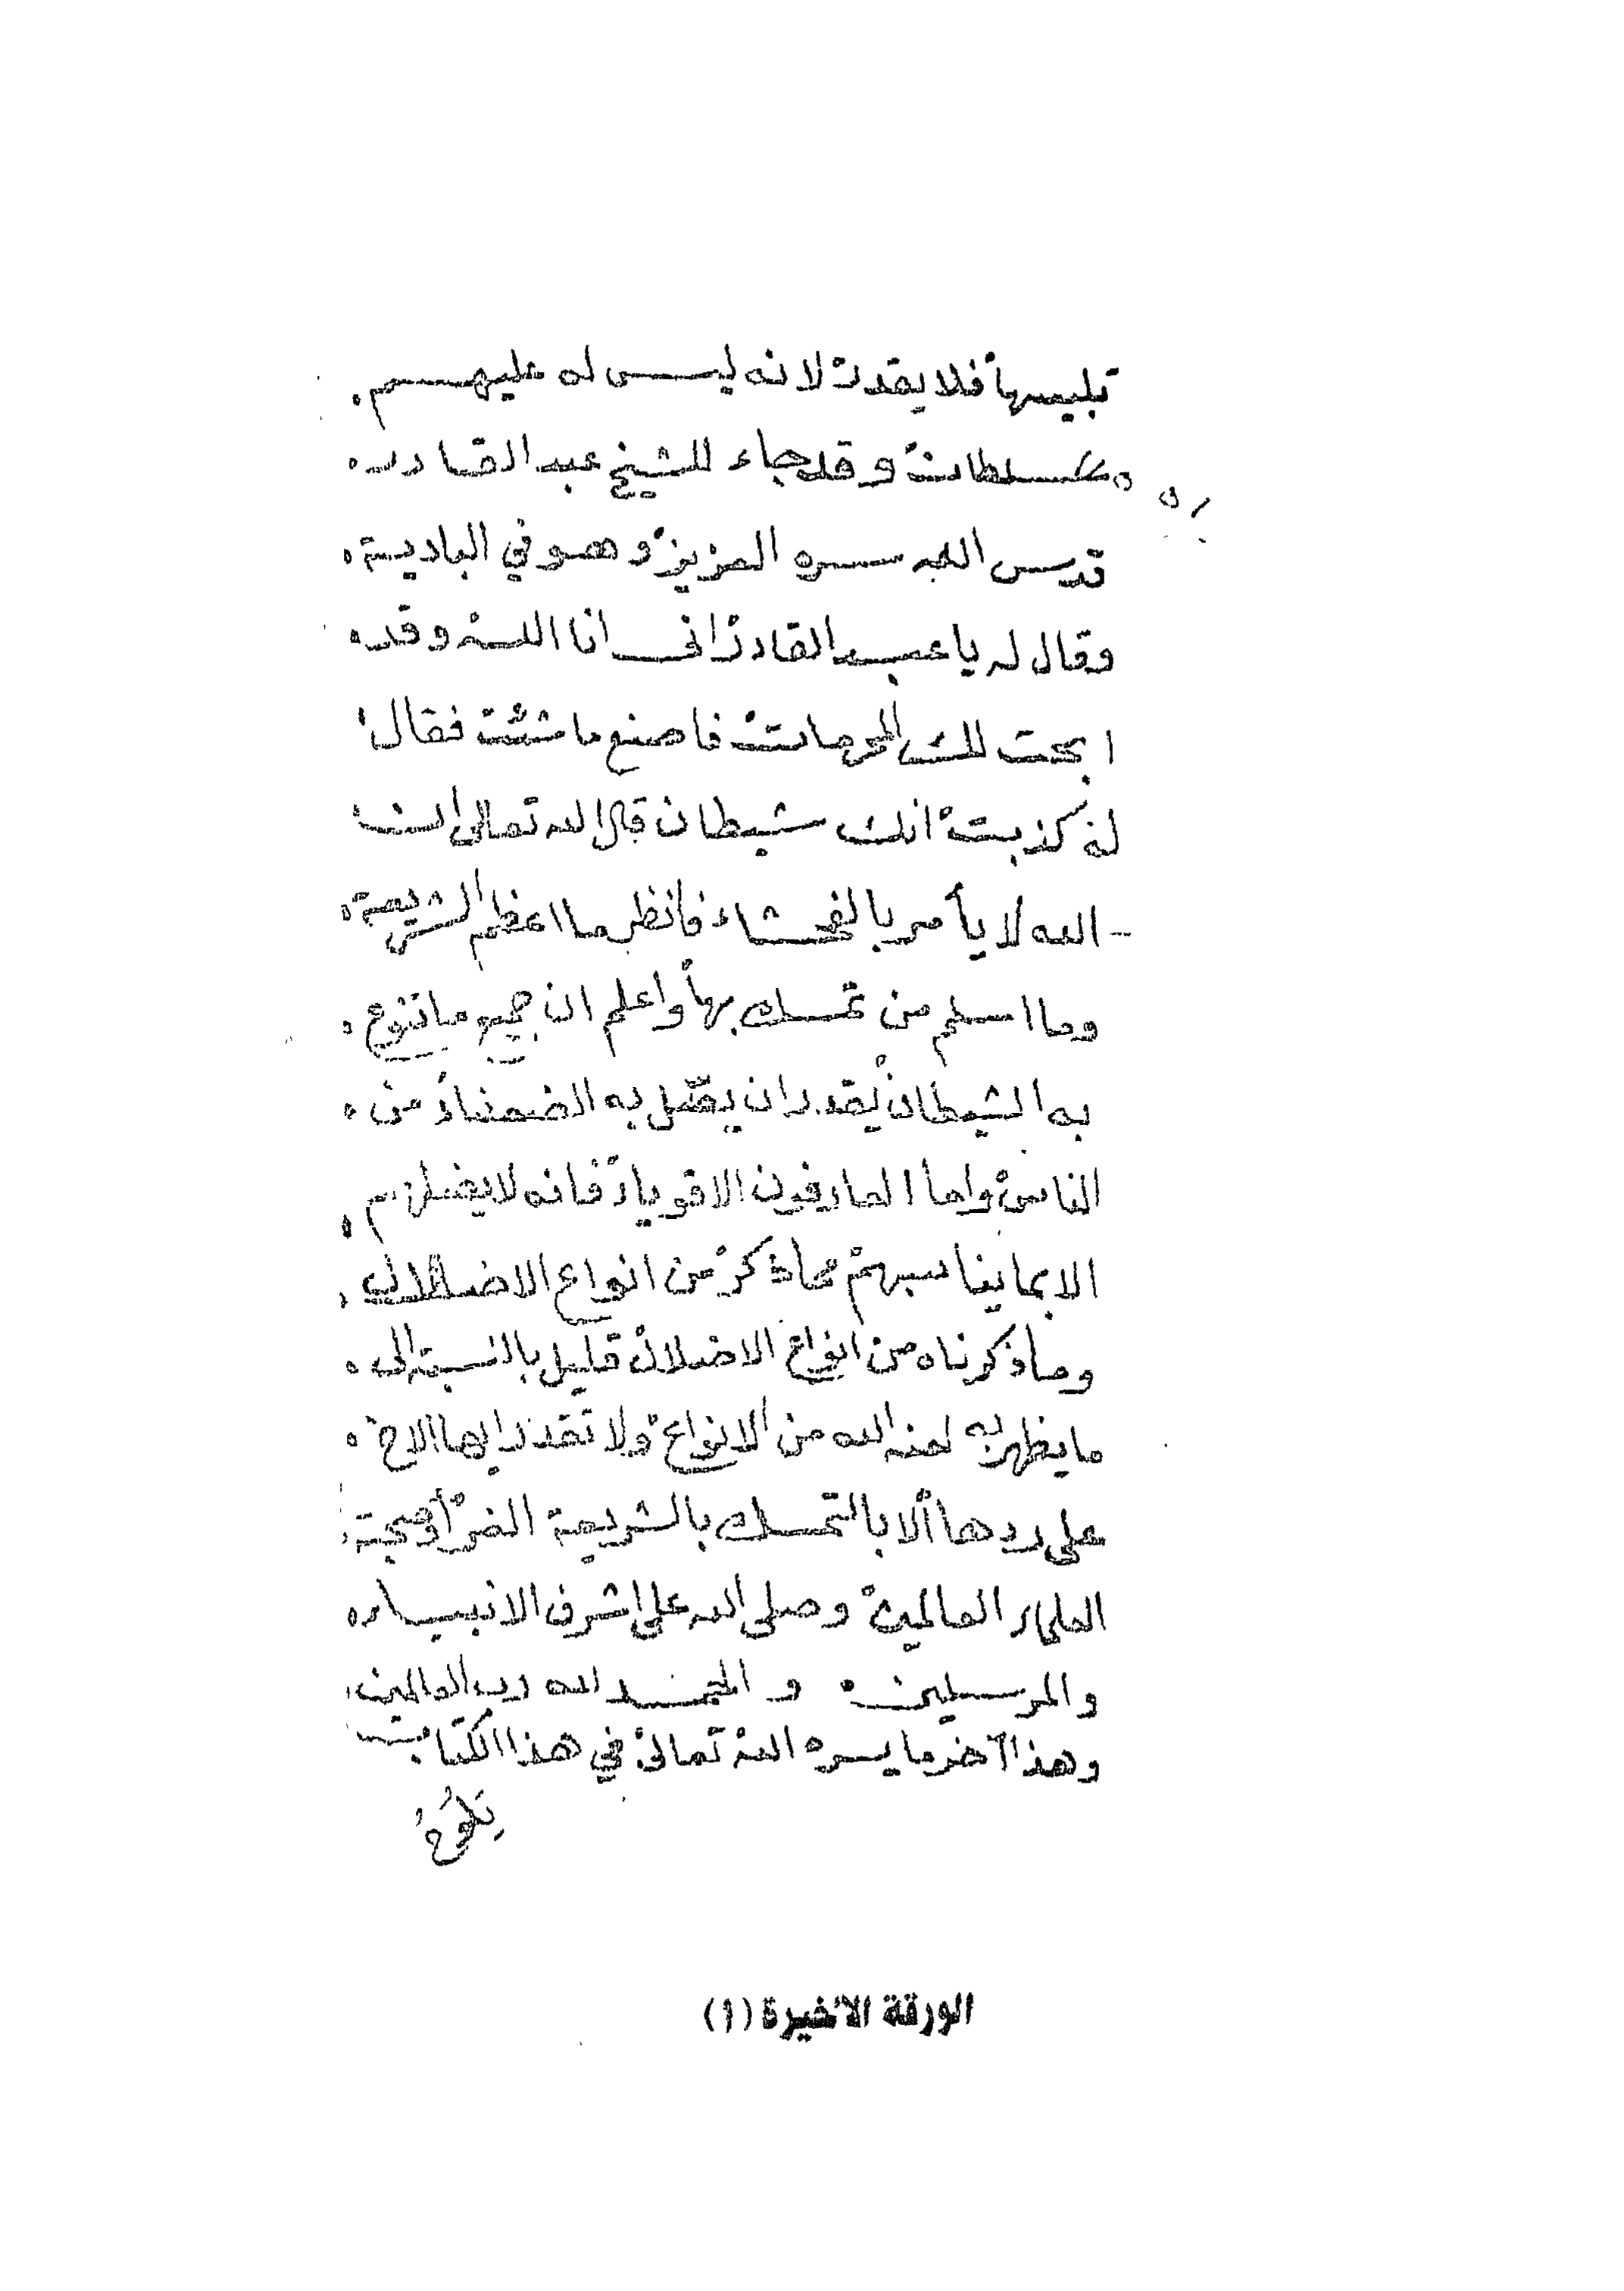 تلبيسها فلا يقدر لانه ليس له عليهم
سلطان وقد جاء للشيخ عبد القادر
قدس الله سره العزيز وهو في البادية
وقال له يا عبد القادر اني انا الله وقد
ابحت لك المحرمات فاصنع ما شئت فقال
له كذبت انك شيطان قال الله تعالى ان
الله لا يأمر بالفحشاء فانظر ما اعظم الشريعة
وما اسلم من تمسك بها واعلم ان جميع ما تنوع
به الشيطان يقدر ان يضل به الضعفاء من
الناس واما العارفون الاقوياء فانه لا يضلهم
الا بما يناسبهم مما ذكر من انواع الاضلال
وما ذكرناه من انواع الاضلال قليل بالنسبة الى
ما يظهر به لعنه الله من الانواع ولا تقدر ايها الاخ
على ردها الا بالتمسك بالشريعة الغرا وصحبة
العلماء العالمين وصلى الله على اشرف الانبياء
والمرسلين والحمد لله رب العالمين
وهذا آخر ما يسره الله تعالى في هذا الكتاب
الورقة الأخيرة (أ)